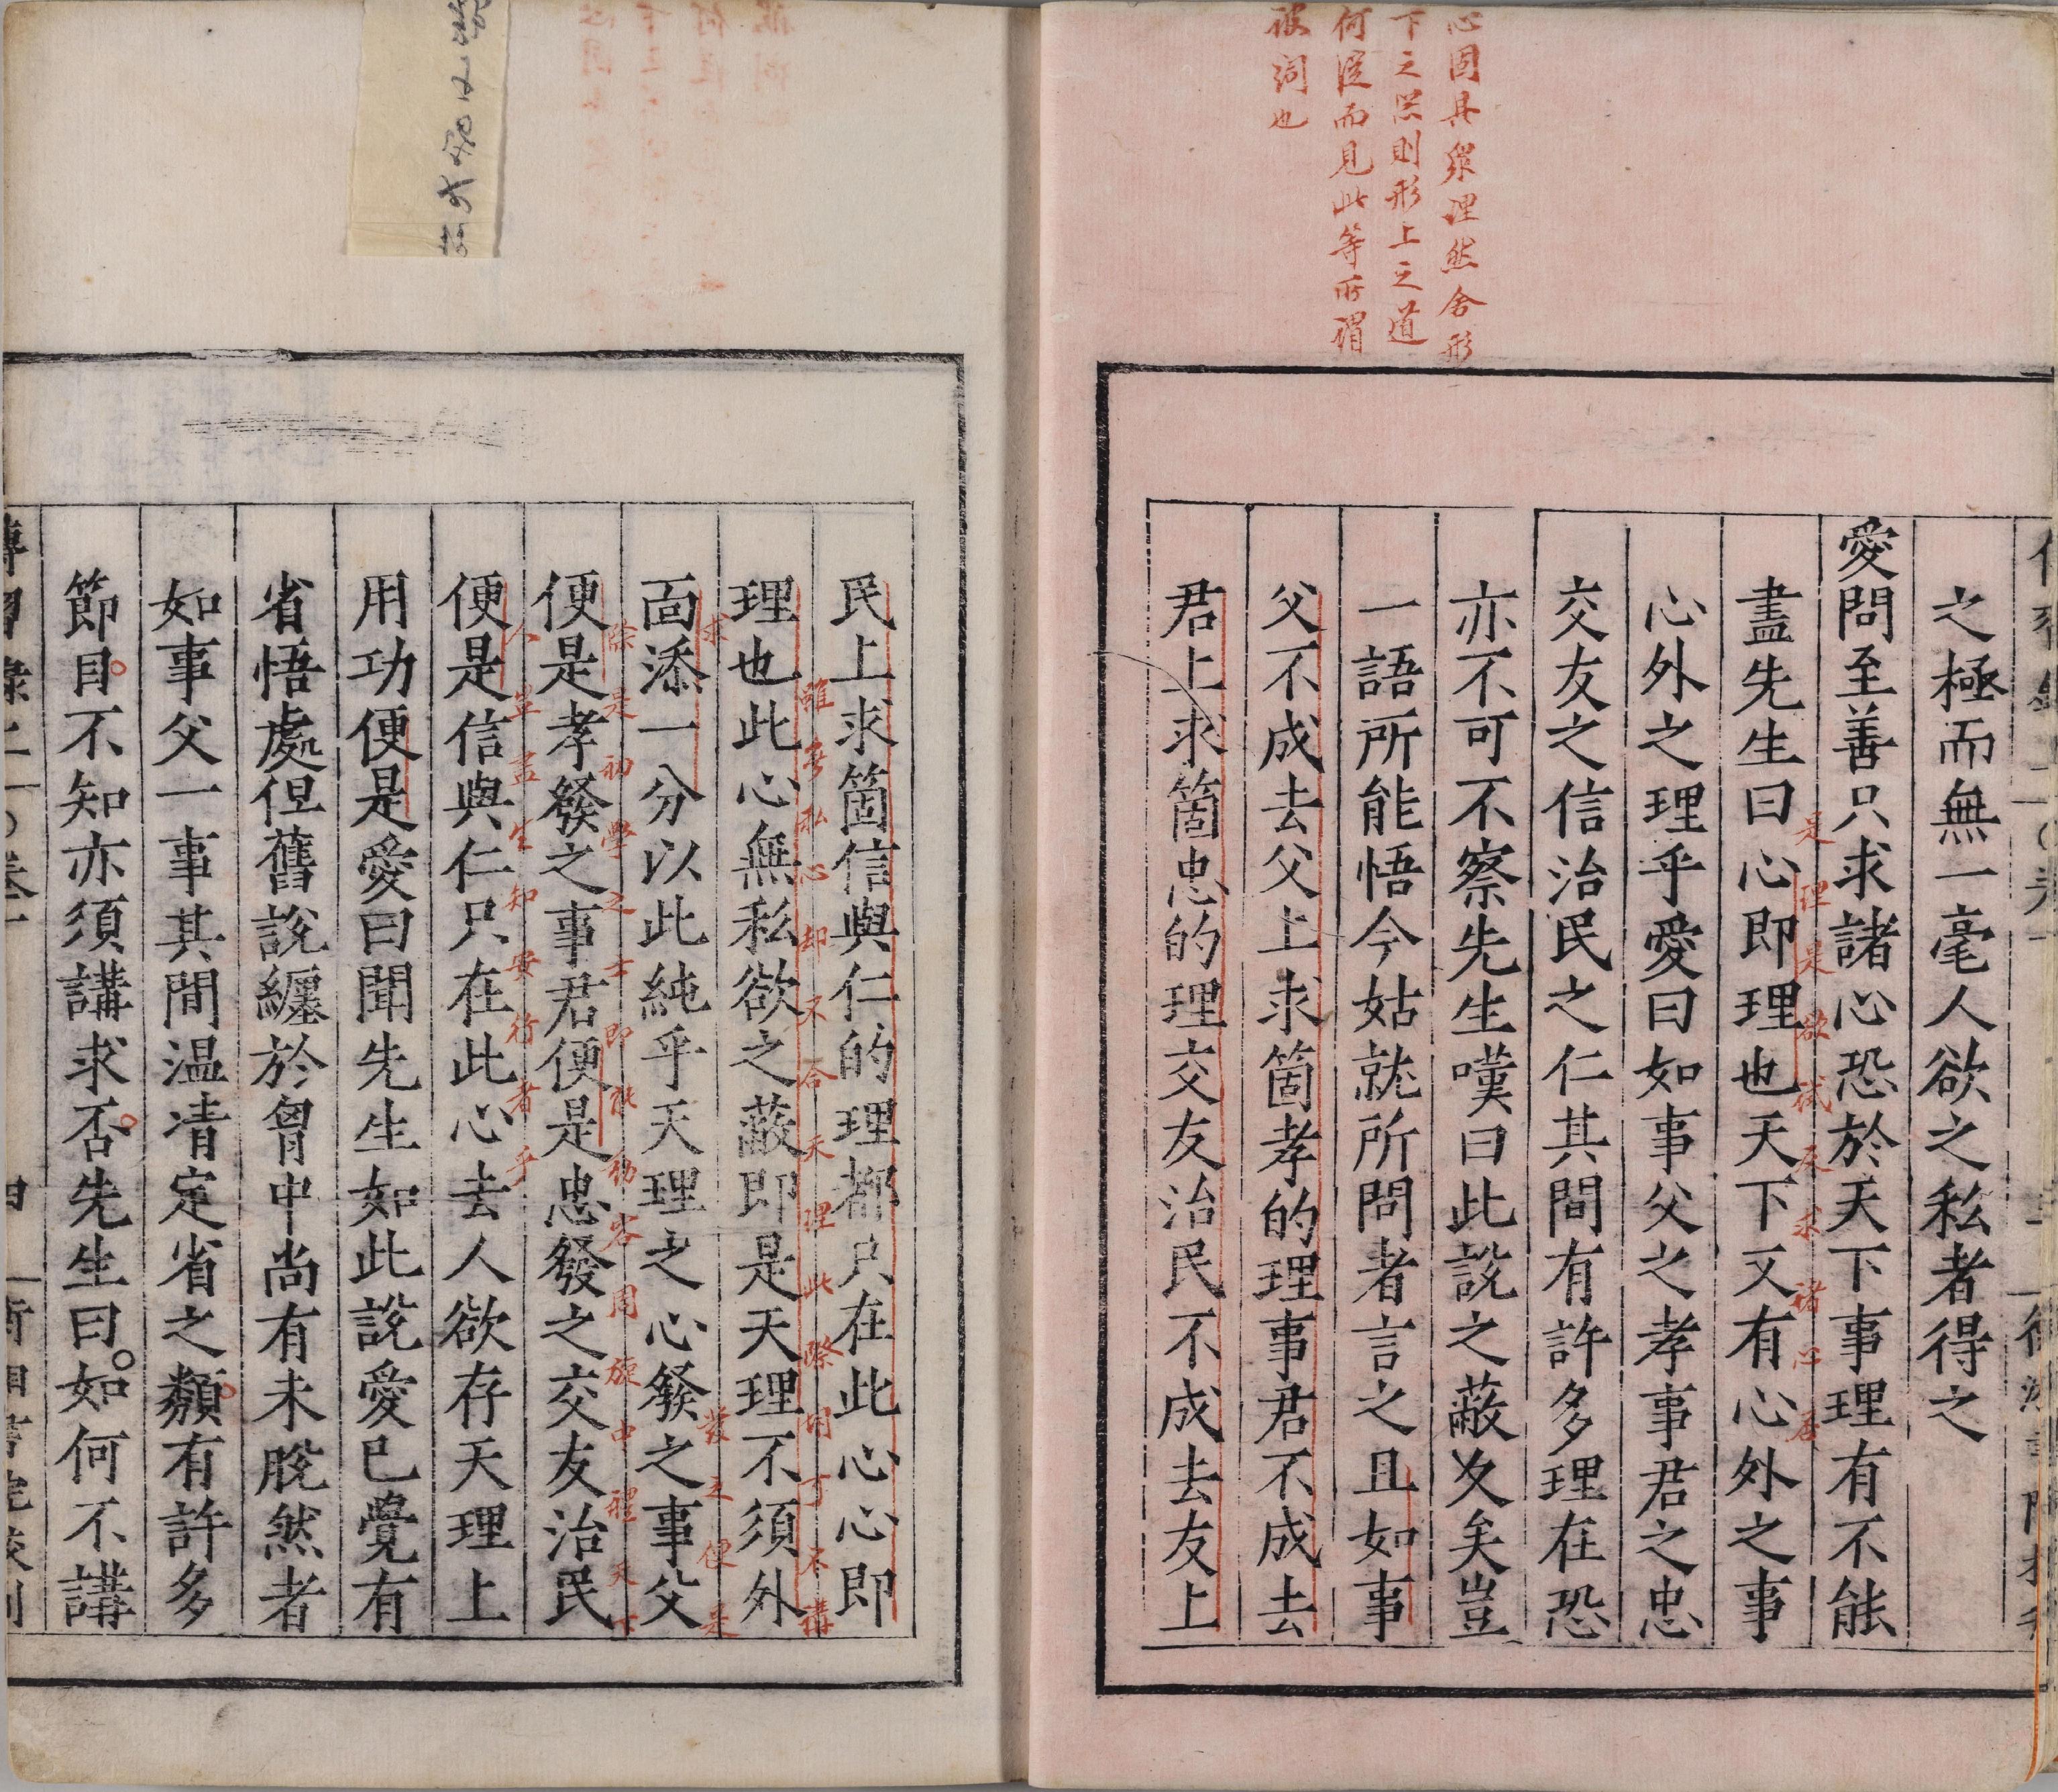 心固具衆理然舍形
下之器則形上之道
何從而見此等所謂
詖詞也
之極而無一毫人欲之私者得之
愛問至善只求諸心恐於天下事理有不能
盡先生曰心即理也天下又有心外之事
心外之理乎愛曰如事父之孝事君之忠
交友之信治民之仁其間有許多理在恐
亦不可不察先生嘆曰此說之蔽久矣豈
一語所能悟今姑就所問者言之且如事
父不成去父上求箇孝的理事君不成去
君上求箇忠的理交友治民不成去友上
是理是欲試反求諸心看
民上求箇信與仁的理都只在此心心即
理也此心無私欲之蔽即是天理不須外
面添一分以此純乎天理之心發之事父
便是孝發之事君便是忠發之交友治民
便是信與仁只在此心去人欲存天理上
用功便是愛曰聞先生如此說愛已覺有
省悟處但舊說纏於胷中尚有未脫然者
如事父一事其間温凊定省之類有許多
節目不知亦須講求否先生曰如何不講
雖無私心却不合天理此際何可不講
求
發之便是
除是初學之士即能動容周旋中禮天下
人豈盡生知安行者乎